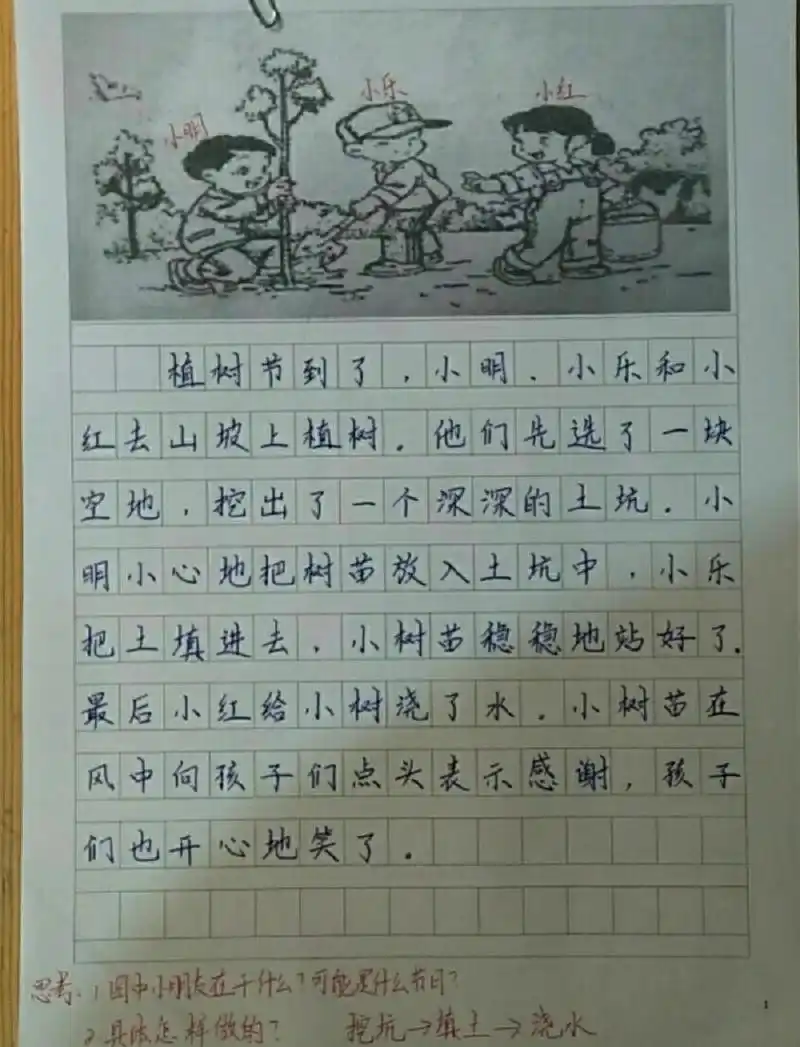 小明
小乐
小红
植树节到了，小明、小乐和小
红去山坡上植树。他们先选了一块
空地，挖出了一个深深的土坑。小
明小心地把树苗放入土坑中，小乐
把土填进去，小树苗稳稳地站好了。
最后小红给小树浇了水。小树苗在
风中向孩子们点头表示感谢，孩子
们也开心地笑了。
思考：1图中小朋友在干什么？可能是什么节日？
2具体怎样做的？ 挖坑→填土→浇水
1